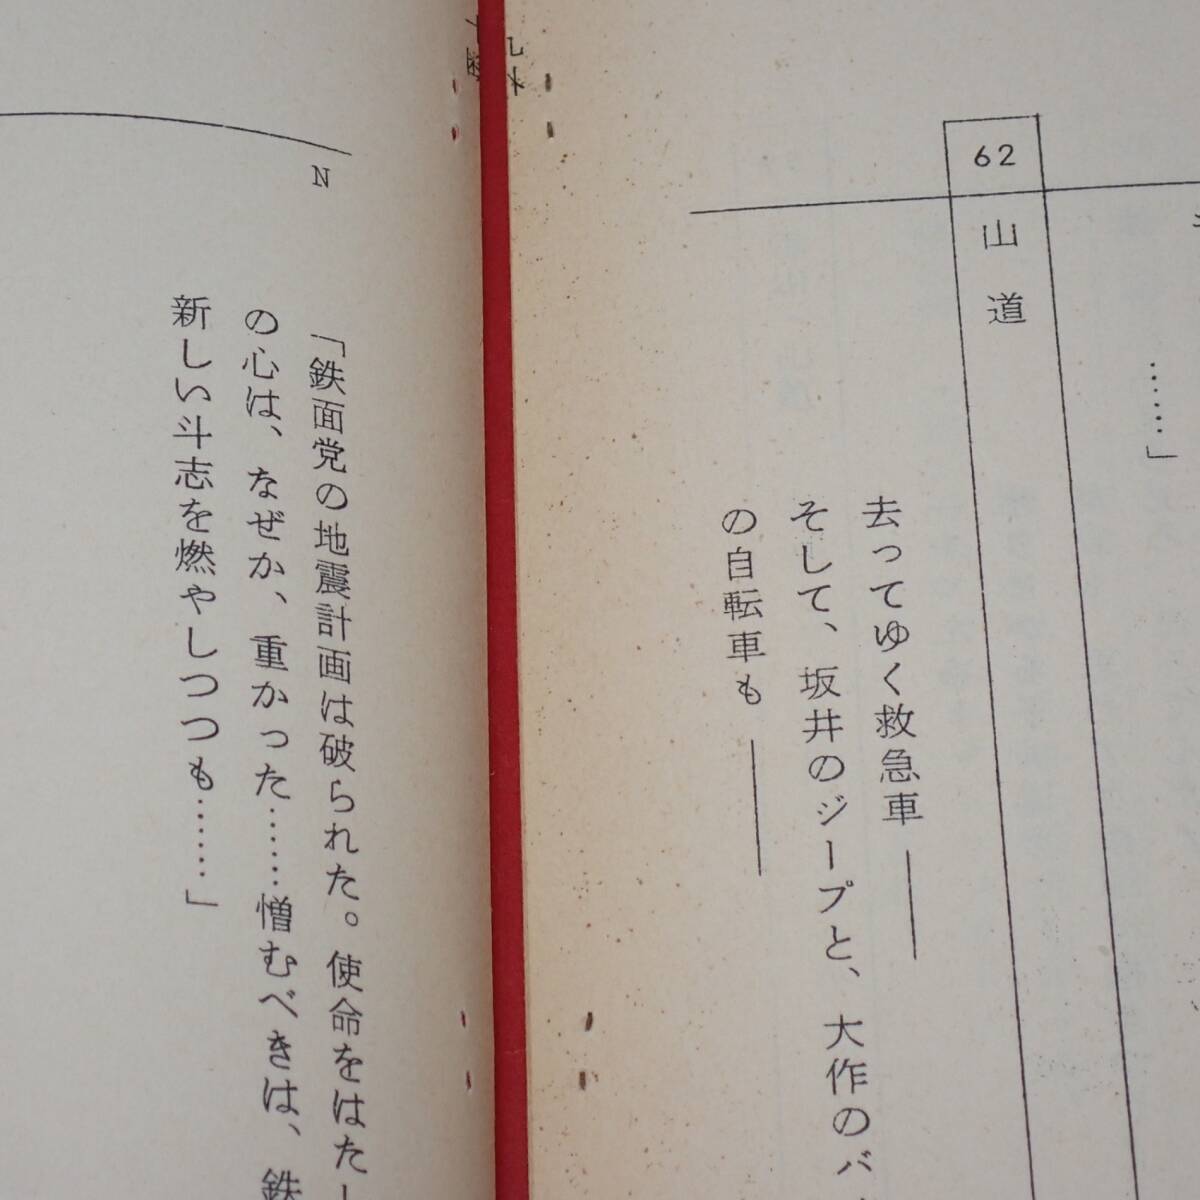 ……」
62
山道
去ってゆく救急車――
そして、坂井のジープと、大作のバ
の自転車も――
N
「鉄面党の地震計画は破られた。使命をはたし
の心は、なぜか、重かった……憎むべきは、鉄
新しい斗志を燃やしつつも……」